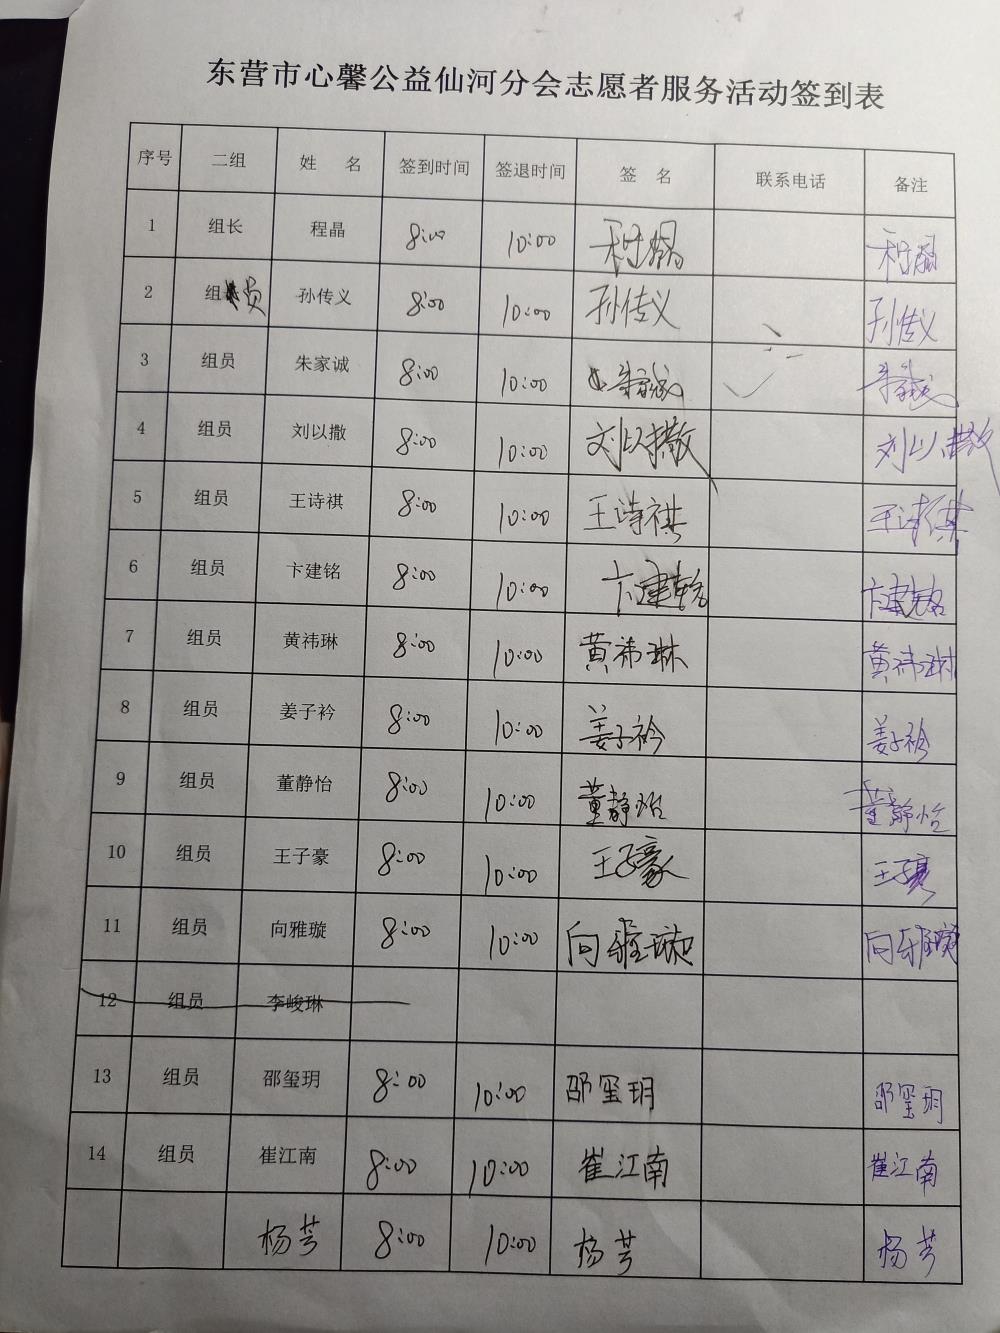 东营市心馨公益仙河分会志愿者服务活动签到表
序号 二组 姓 名 签到时间 签退时间 签 名 联系电话 备注
1 组长 程晶 8:00 10:00 程晶 程晶
2 组员 孙传义 8:00 10:00 孙传义 孙传义
3 组员 朱家诚 8:00 10:00 朱家诚 朱家诚
4 组员 刘以撒 8:00 10:00 刘以撒 刘以撒
5 组员 王诗祺 8:00 10:00 王诗祺 王诗祺
6 组员 卞建铭 8:00 10:00 卞建铭 卞建铭
7 组员 黄祎琳 8:00 10:00 黄祎琳 黄祎琳
8 组员 姜子衿 8:00 10:00 姜子衿 姜子衿
9 组员 董静怡 8:00 10:00 董静怡 董静怡
10 组员 王子豪 8:00 10:00 王子豪 王子豪
11 组员 向雅璇 8:00 10:00 向雅璇 向雅璇
12 组员 李峻琳
13 组员 邵玺玥 8:00 10:00 邵玺玥 邵玺玥
14 组员 崔江南 8:00 10:00 崔江南 崔江南
杨芸 8:00 10:00 杨芸 杨芸